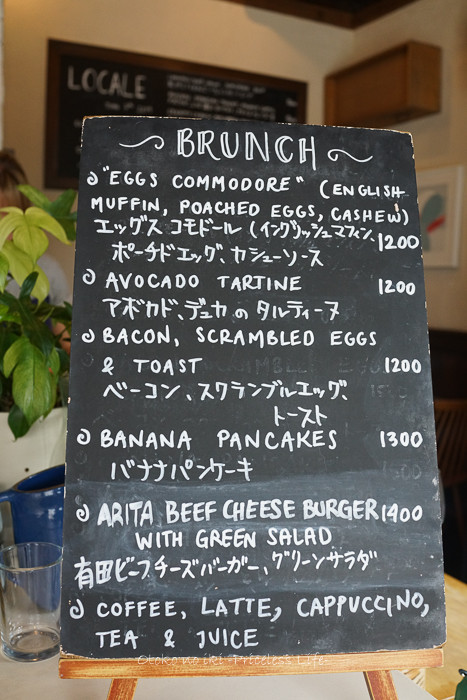 LOCALE
~ BRUNCH ~
"EGGS COMMODORE" (ENGLISH
MUFFIN, POACHED EGGS, CASHEW)
エッグス コモドール (イングリッシュマフィン、 1200
ポーチドエッグ、カシューソース
AVOCADO TARTINE 1200
アボカド、デュカ の タルティーヌ
BACON, SCRAMBLED EGGS
& TOAST 1200
ベーコン、スクランブルエッグ、
トースト
BANANA PANCAKES 1300
バナナパンケーキ
ARITA BEEF CHEESE BURGER 1900
WITH GREEN SALAD
有田ビーフチーズバーガー、グリーンサラダ
COFFEE, LATTE, CAPPUCCINO,
TEA & JUICE
Otoko no iki -Priceless Life-